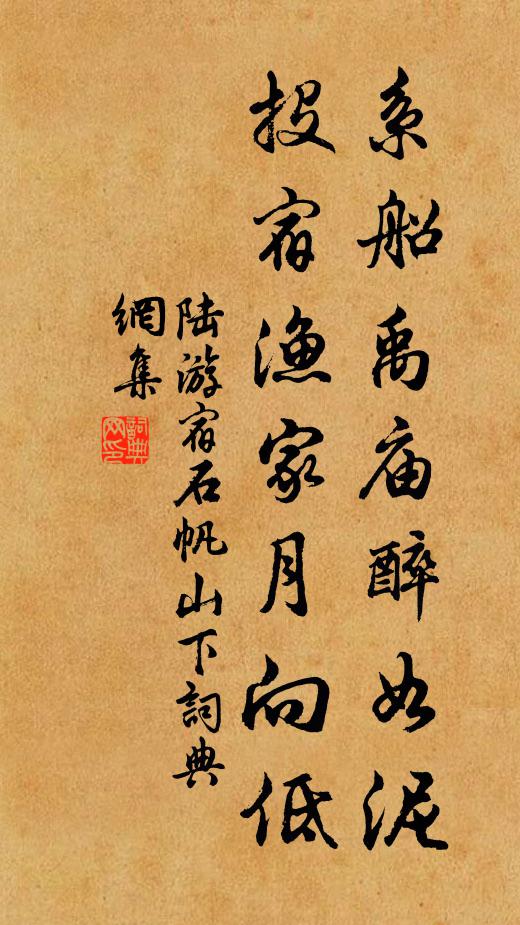 系船禹庙醉如泥
投宿渔家月向低
陆游宿石帆山下詞典
網集
詞典
网印